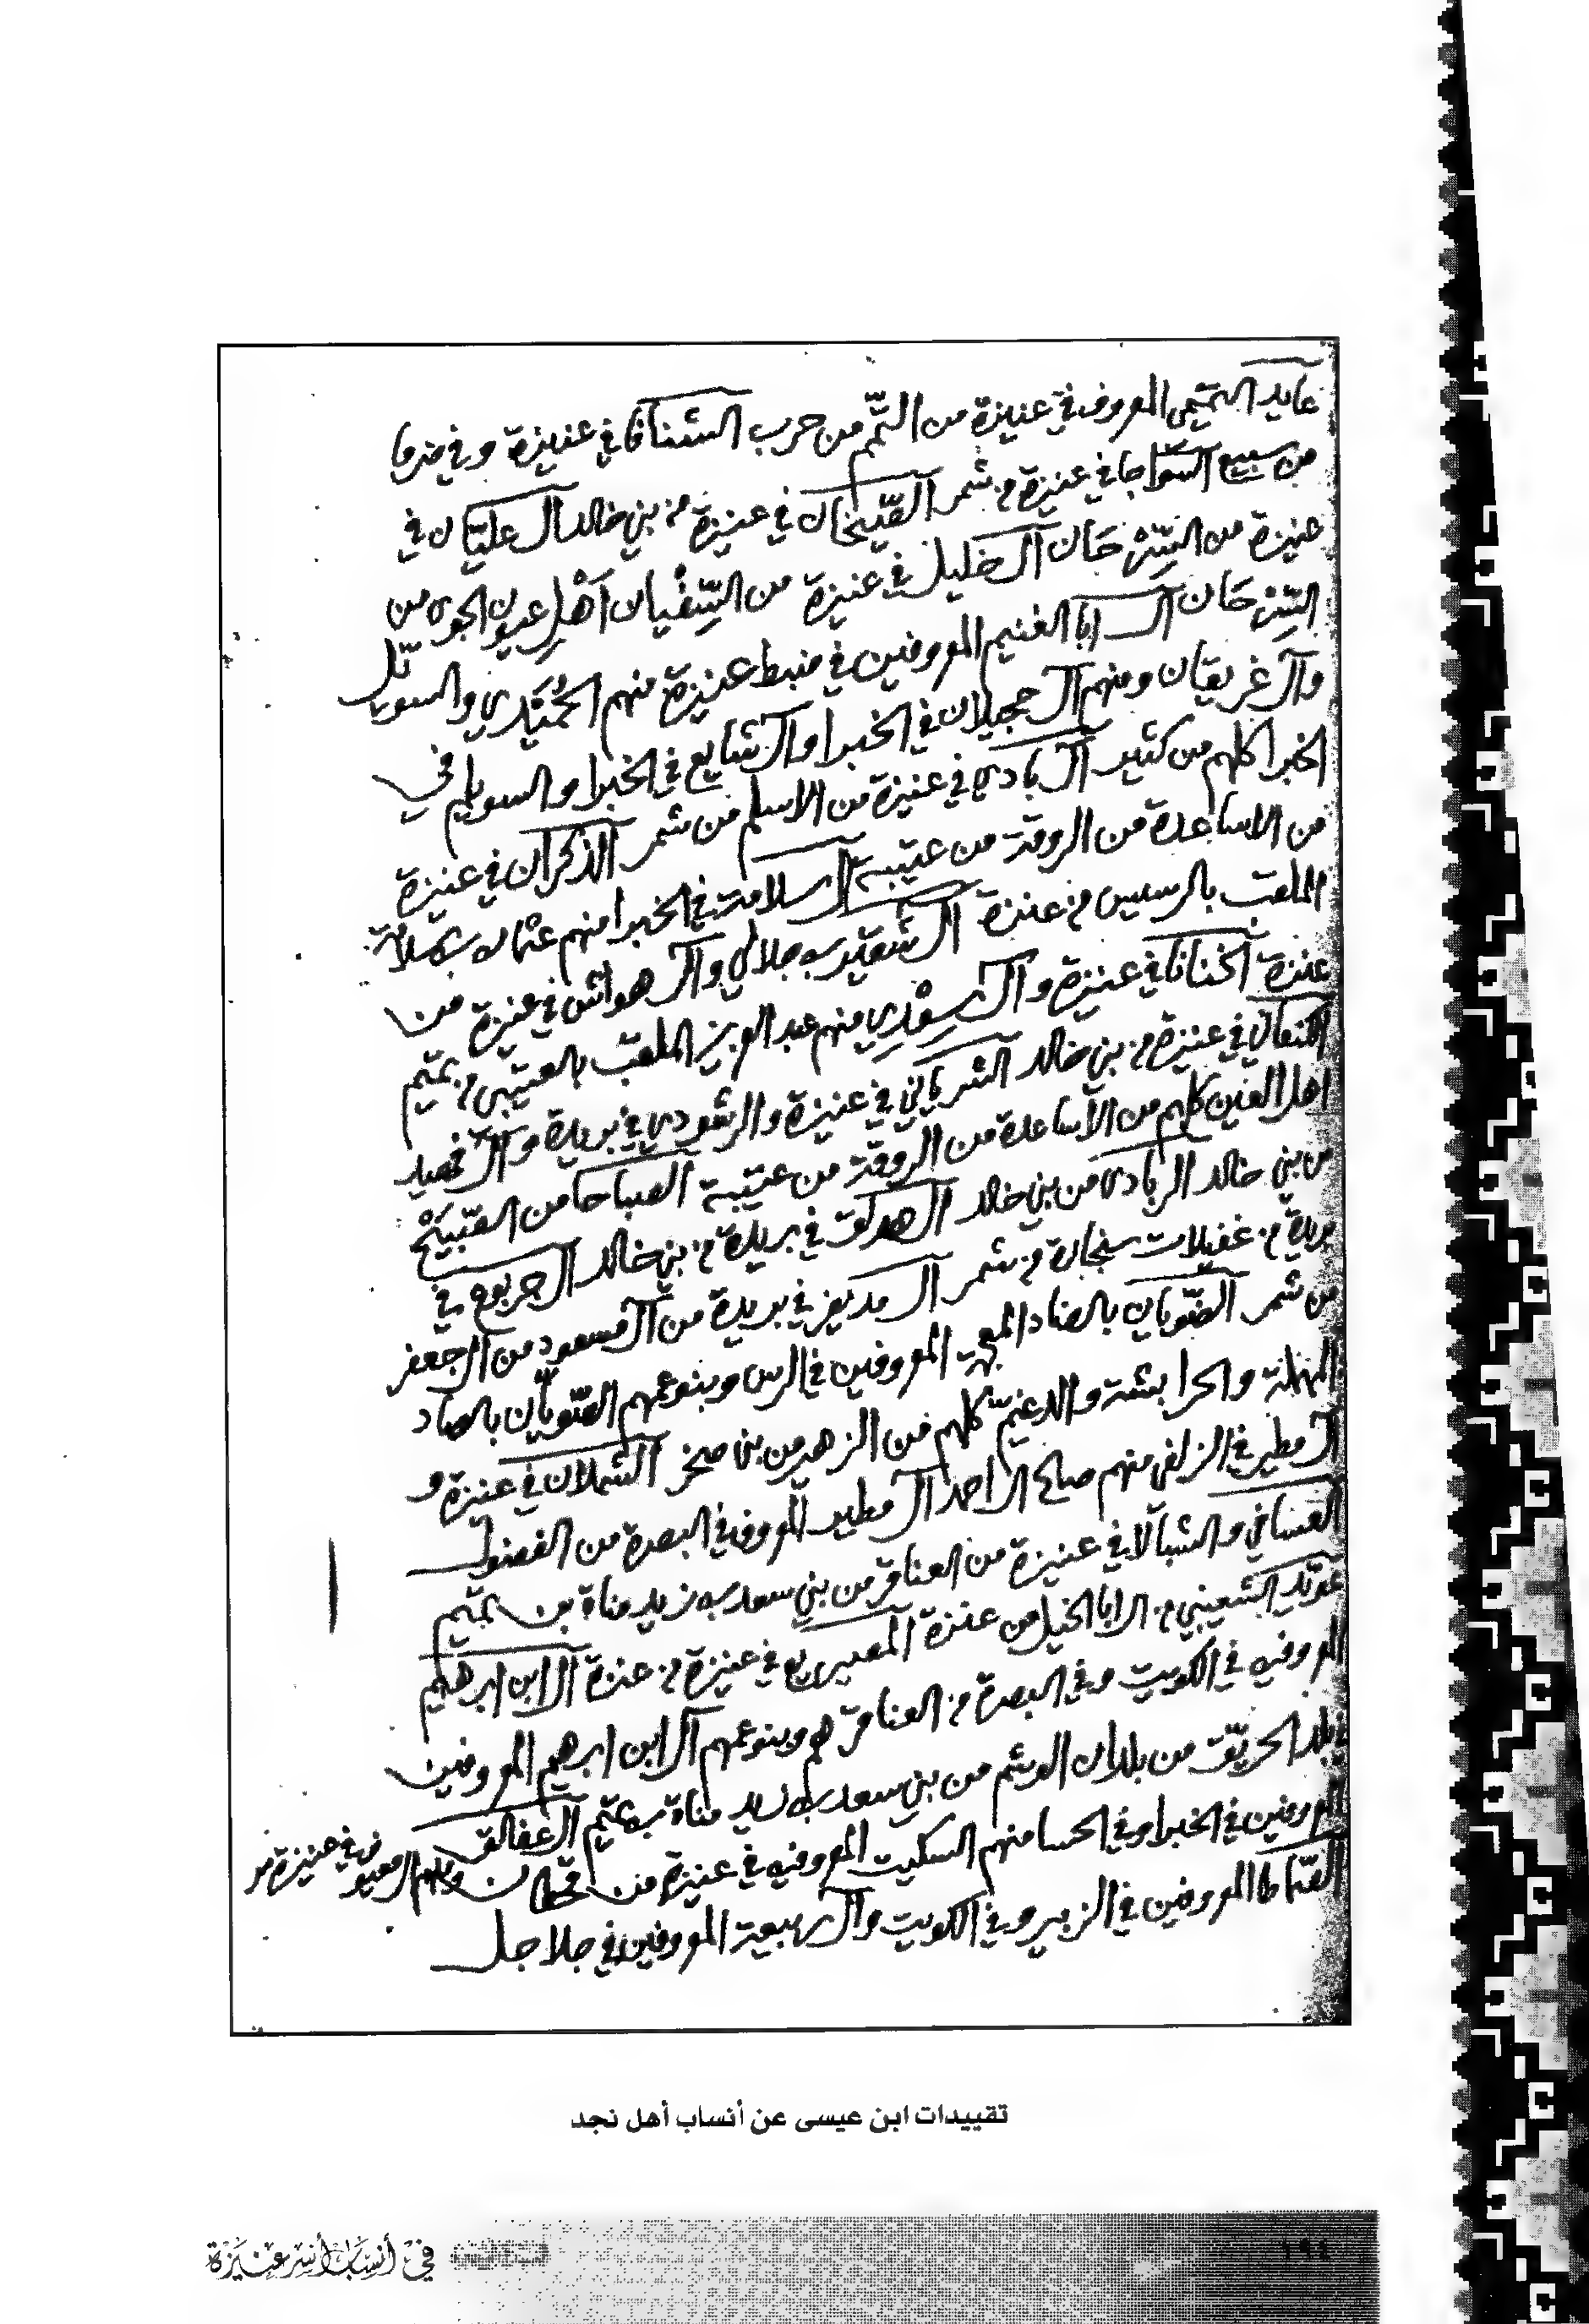 عايد التميمي المعروف في عنيزة من التمم من حرب الشنافا في عنيزة وفي ضرما
من سبيع السواجا في عنيزة من شمر القيخان في عنيزة من بني خالد آل عليان في
عنيزة من السرحان آل خليل في عنيزة من السفيان أهل عيون الجوى من
السرحان آل ابا الغنيم المعروفين في ضبط عنيزة منهم الحميدي والسويل
وآل غريقان ومنهم آل حجيلان في الخبرا وآل شايع في الخبرا والسويلم في
الخبرا كلهم من كثير آل بادي في عنيزة من الاسلم من شمر الذكران في عنيزة
من الاساعدة من الروقة من عتيبة آل سلامة في الخبرا منهم عثمان بن سلامة
الملقب بالرسيس من عنزة آل شقير بن جلالي وآل هواش في عنيزة من
عنزة الخنانا في عنيزة وآل سعدي منهم عبد العزيز الملقب بالعتيبي من تميم
الكنعاني في عنيزة من بني خالد الشرياني في عنيزة والرشودي في بريدة وآل فهيد
اهل العين كلهم من الاساعدة من الروقة من عتيبة الصباحا من القبيح
من بني خالد الزبادى من بني خالد آل هدلق في بريدة من بني خالد آل جربوع في
بريدة من غفيلات سنجارة من شمر آل مديغر في بريدة من آل مسعود من آل جعفر
من شمر الضويان بالضاد المعجمة المعروفين في الرس وبنو عمهم الصويان بالصاد
المهملة والحرابشة والدغيم كلهم من الزهير من بني صخر الشملان في عنيزة و
آل مطير في الزلفي منهم صالح ال احمد آل مطير المعروف في البصرة من الفضول
العسافي والشبالا في عنيزة من العناقر من بني سعد بن زيد مناة بن تميم
عويد الشعيبي من ال ابا الخيل من عنزة المعيريع في عنيزة من عنزة ال ابن ابرهيم
المعروفين في الكويت وفي البصرة من العناقر هم وبنو عمهم آل ابن ابرهيم المعروفين
في بلد الحريق من بلدان الوشم من بني سعد بن زيد مناة بن تميم آل عفالق
المعروفين في الخبرا وفي الحسا منهم السكيت المعروفين في عنيزة من قحطان ومنهم ال معيوف في عنيزة
القماط المعروفين في الزبير وفي الكويت وآل ربيعة المعروفين في جلاجل
تقييدات ابن عيسى عن أنساب أهل نجد
في أنساب أسر عنيزة